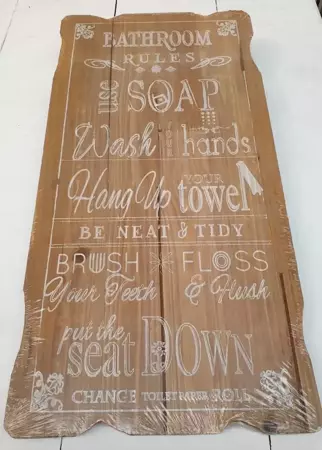 BATHROOM
RULES
USE SOAP
Wash YOUR hands
Hang Up YOUR towel
BE NEAT & TIDY
BRUSH FLOSS
Your Teeth & Flush
put the
seat DOWN
CHANGE TOILET PAPER ROLL